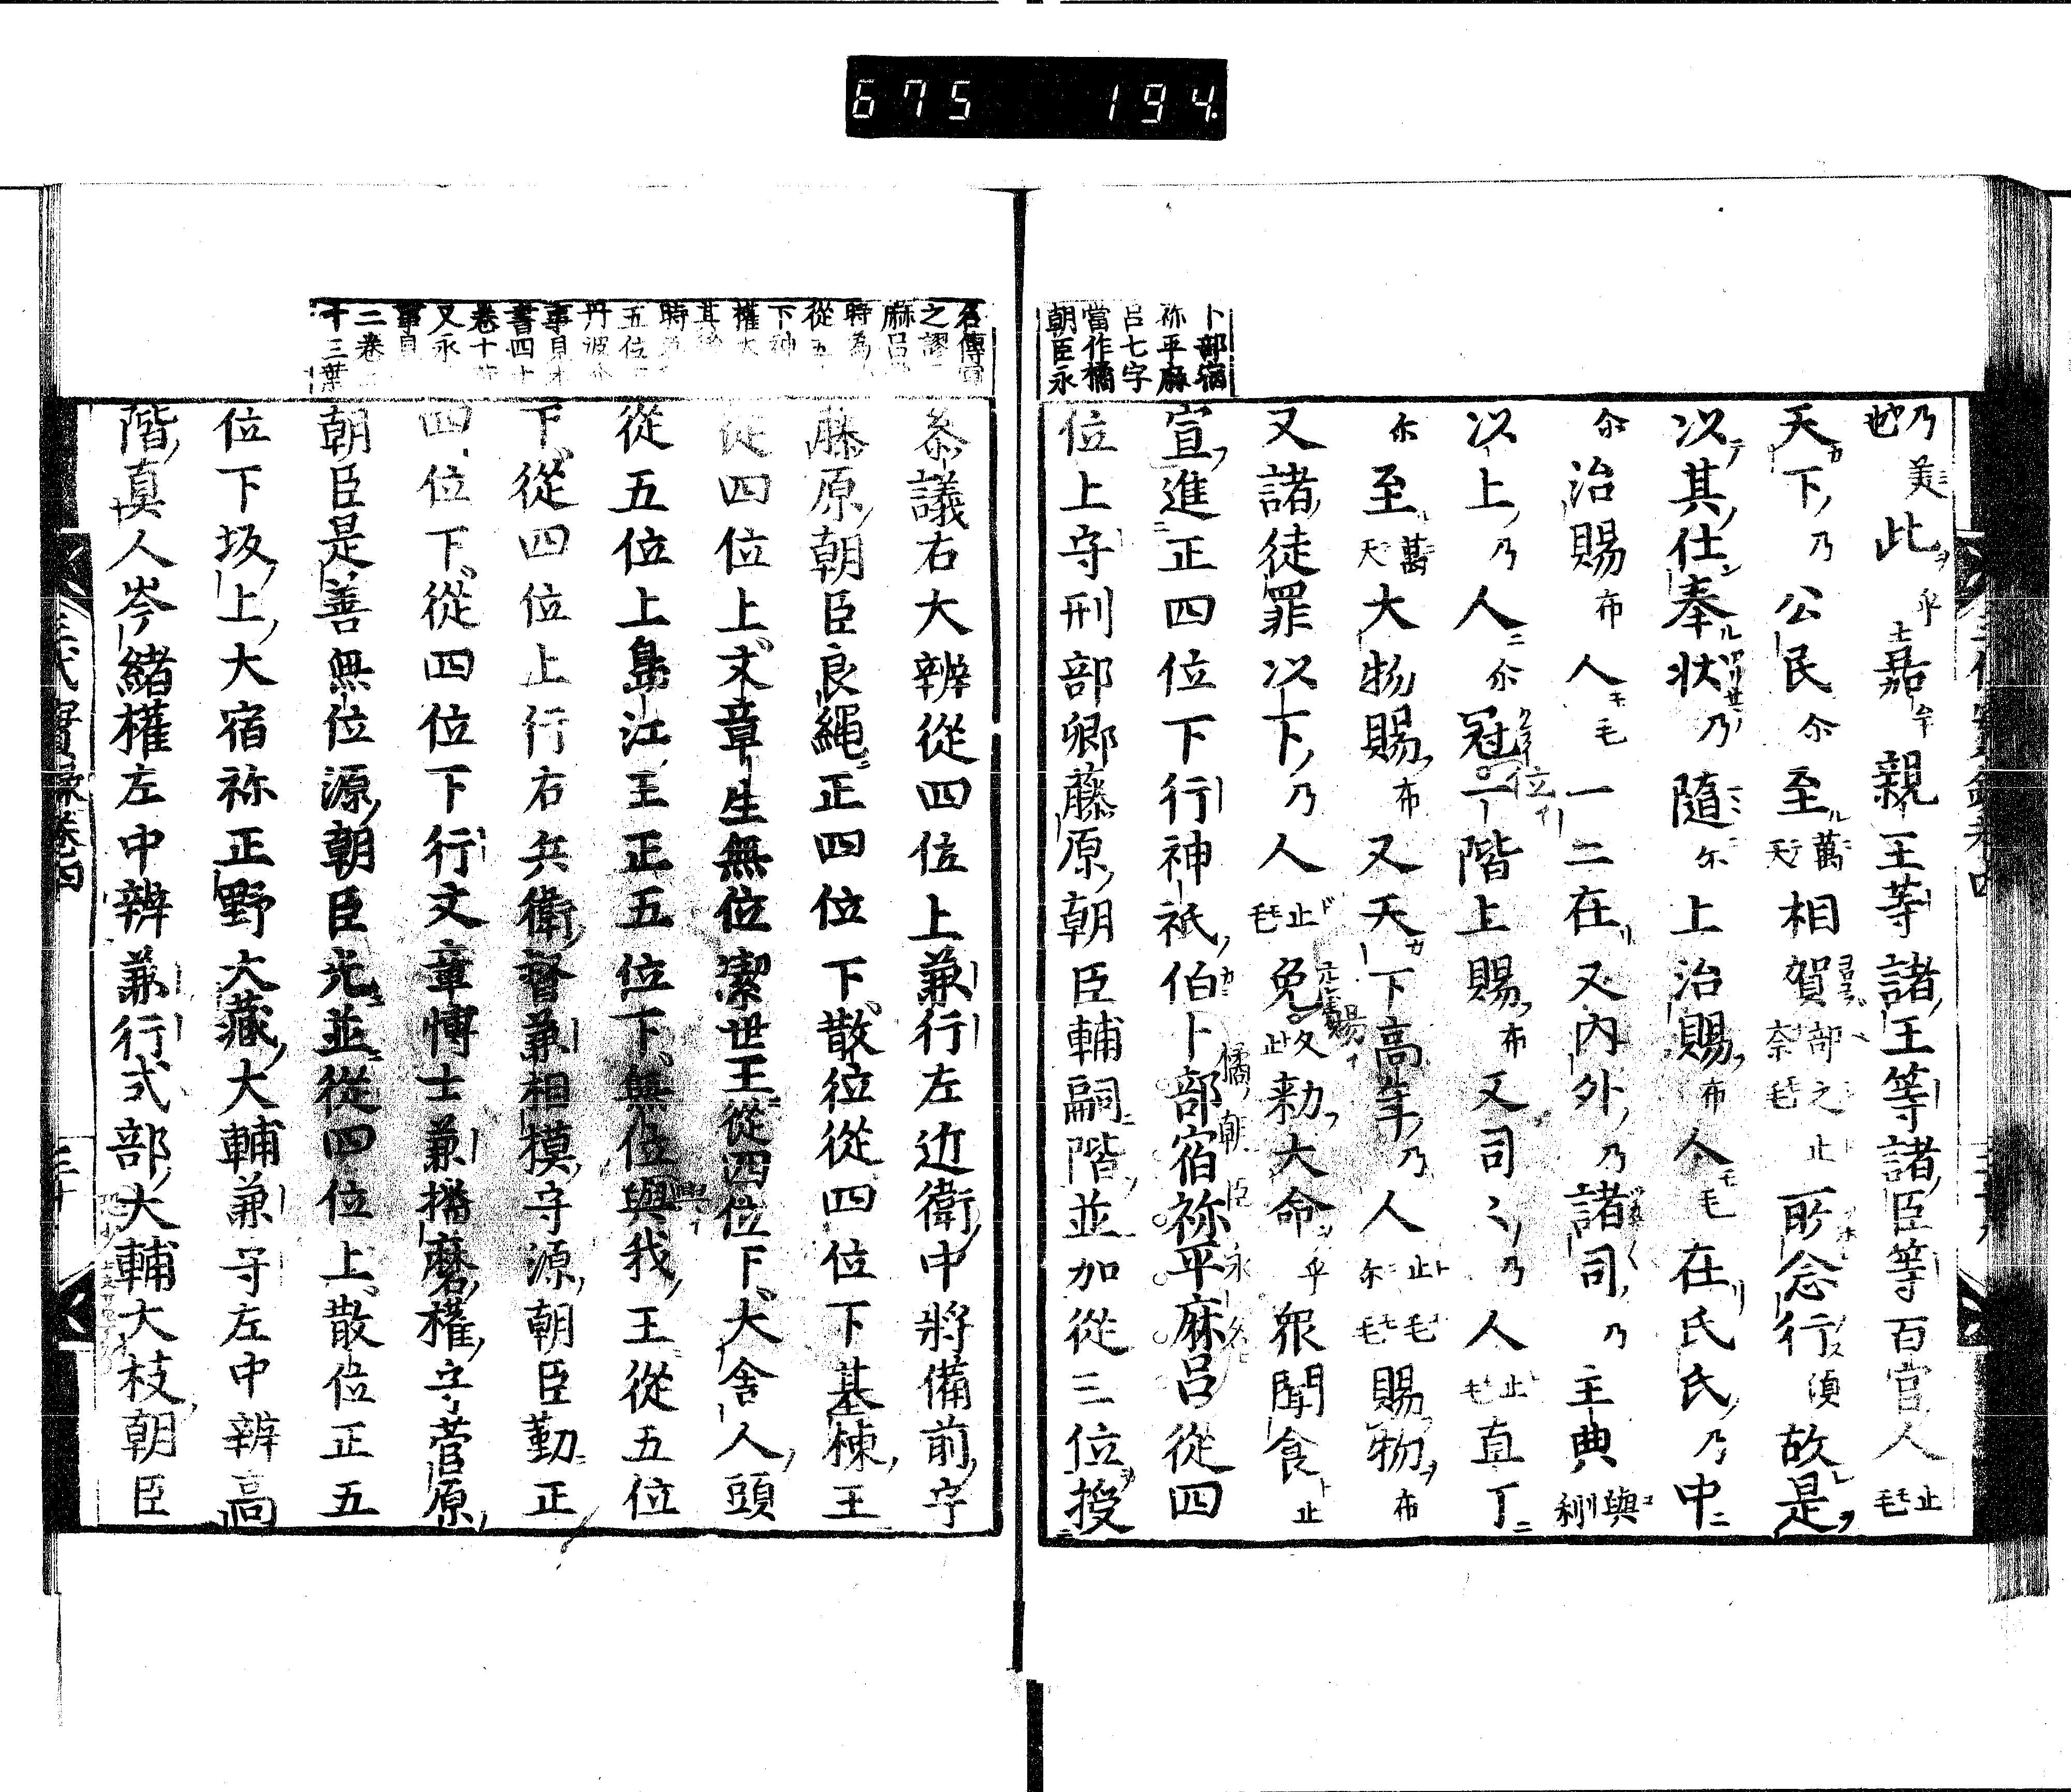 675 194.
卜部宿
祢平麻
呂七字
當作橘
朝臣永
乃美此乎嘉牟親王等諸王等諸臣等百官人止毛
天下乃公民尒至萬天相賀部之奈毛止所念行須故是
以其仕奉状乃隨尒上治賜布人毛在氏氏乃中
尒治賜布人毛一二在又内外乃諸司乃主典與利
以上乃人尒冠一階上賜布又司〻乃人止毛直丁
尒至萬天大物賜布又天下高年乃人止毛尒毛賜物布
又諸徒罪以下乃人止毛免賜久止勅大命乎衆聞食止
宣進正四位下行神祇伯卜部宿祢平麻呂從四
位上守刑部卿藤原朝臣輔嗣階並加從三位授
名傳宣
之謬
麻呂
時為
從五
下神
權大
其後
時
五位
丹波
事見
書四十
卷十
又永
事見
二卷
十三葉
叅議右大辨從四位上兼行左近衛中將備前守
藤原朝臣良繩正四位下散位從四位下基棟王
從四位上文章生無位潔世王從四位下大舍人頭
從五位上島江王正五位下無位與我王從五位
下從四位上行右兵衛督兼相模守源朝臣勤正
四位下從四位下行文章博士兼播磨權守菅原
朝臣是善無位源朝臣光並從四位上散位正五
位下坂上大宿祢正野大藏大輔兼守左中辨高
階真人岑緒權左中辨兼行式部大輔大枝朝臣
三代實錄卷四 三十